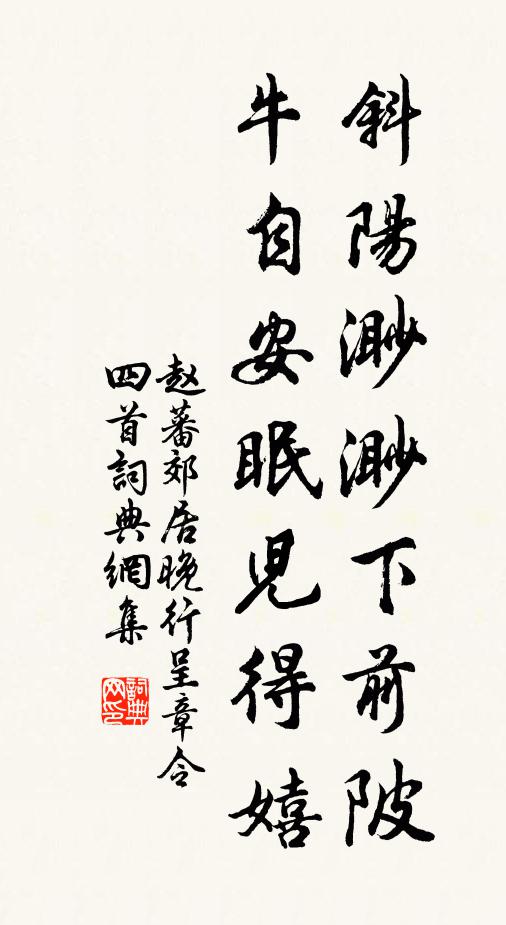 斜陽渺渺下前陂
牛自安眠兒得嬉
赵蕃郊居晚行呈章令
四首詞典網集
詞典網印